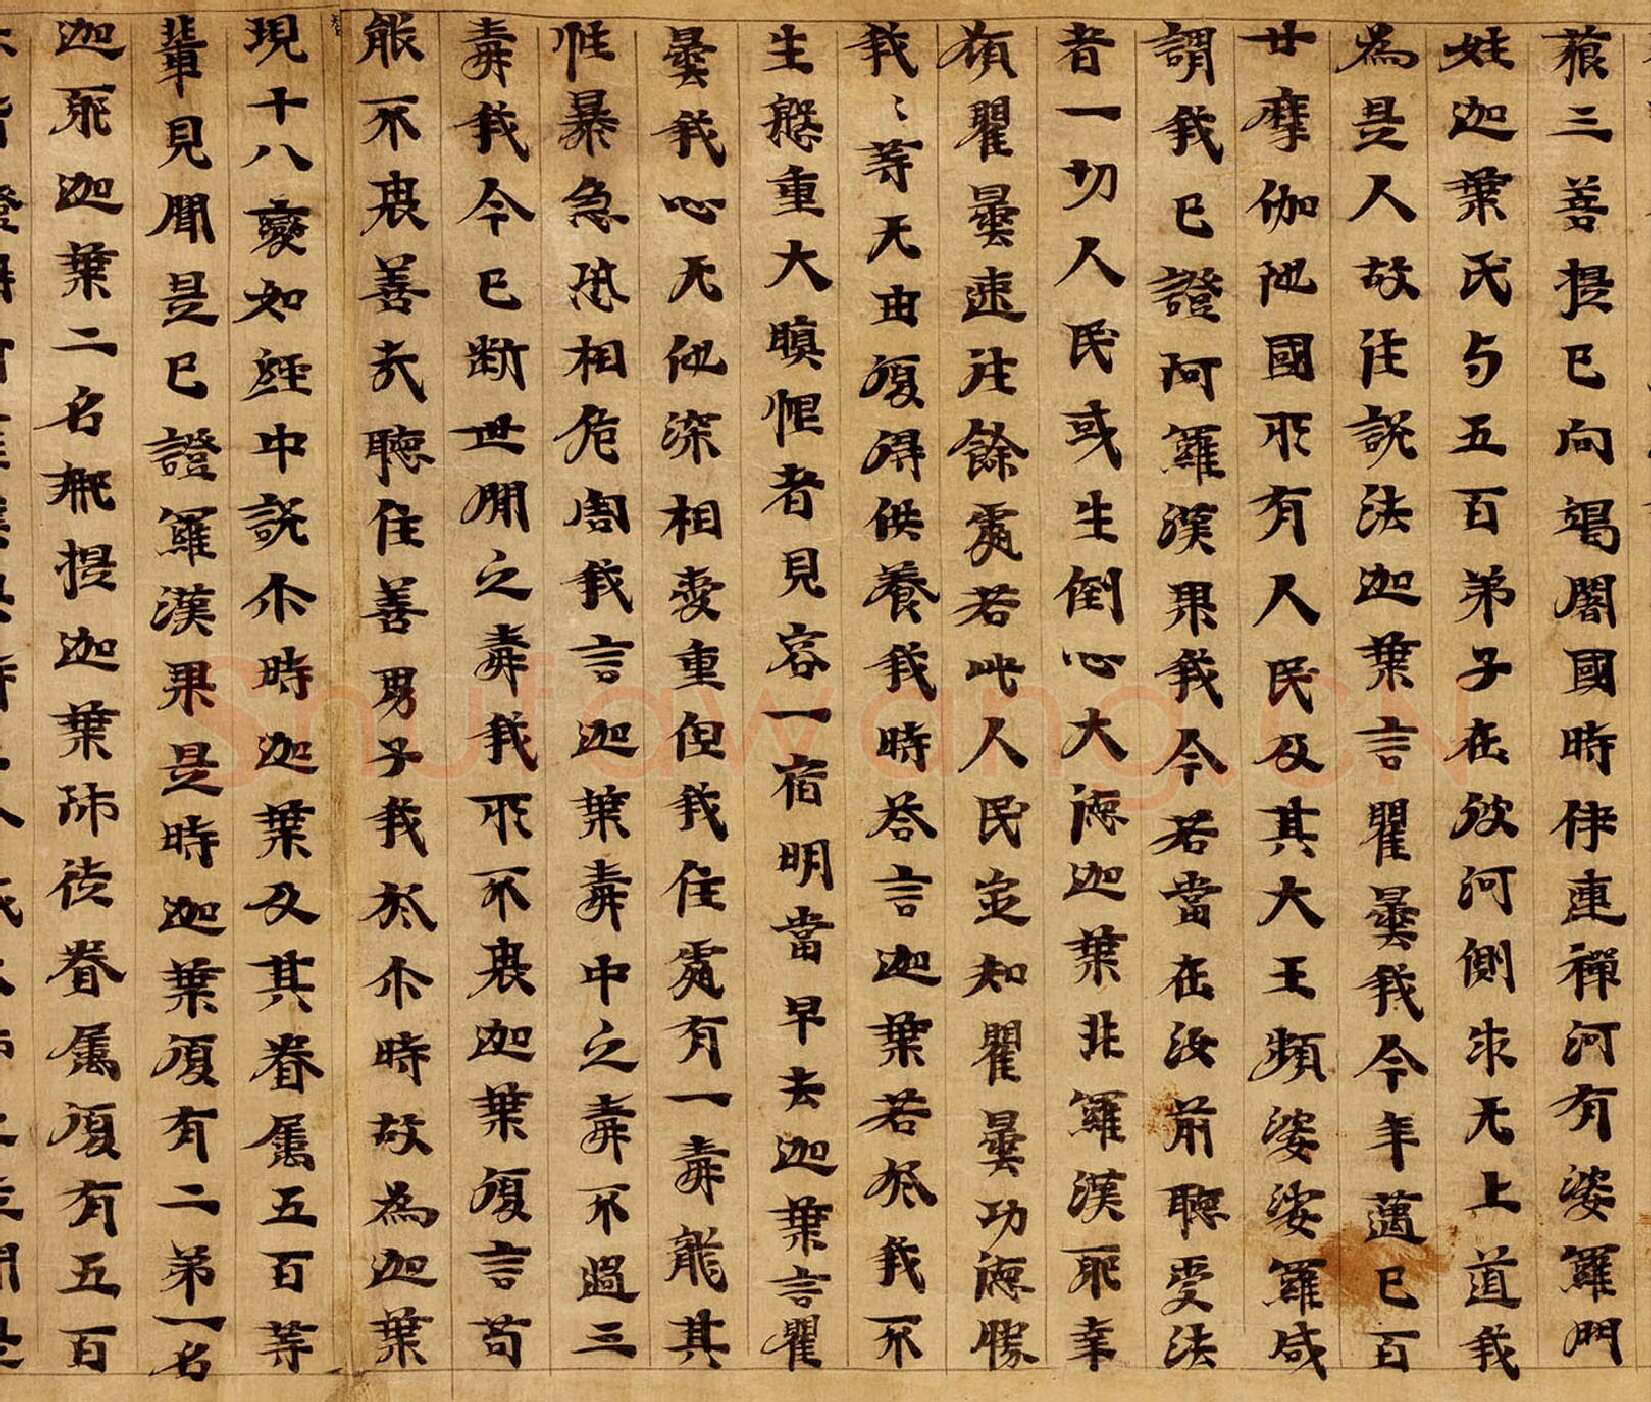 藐三菩提已向竭闍國時伊連禪河有婆羅門
姓迦葉氏与五百弟子在彼河側求无上道我
為是人故往說法迦葉言瞿曇我今年邁已百
廿摩伽陁國所有人民及其大王頻婆娑羅咸
謂我已證阿羅漢果我今若當在汝前聽受法
者一切人民或生倒心大德迦葉非羅漢耶幸
願瞿曇速往餘處若此人民定知瞿曇功德勝
我〻等无由復得供養我時答言迦葉若於我不
生慇重大瞋恨者見容一宿明當早去迦葉言瞿
曇我心无他深相愛重但我住處有一毒龍其
性暴急恐相危害我言迦葉毒中之毒不過三
毒我今已斷世間之毒我所不畏迦葉復言苟
能不畏善哉聽住善男子我於尒時故為迦葉
現十八變如經中說尒時迦葉及其眷属五百等
輩見聞是已證羅漢果是時迦葉復有二弟一名
迦耶迦葉二名那提迦葉師徒眷属復有五百
Shufawang.CN